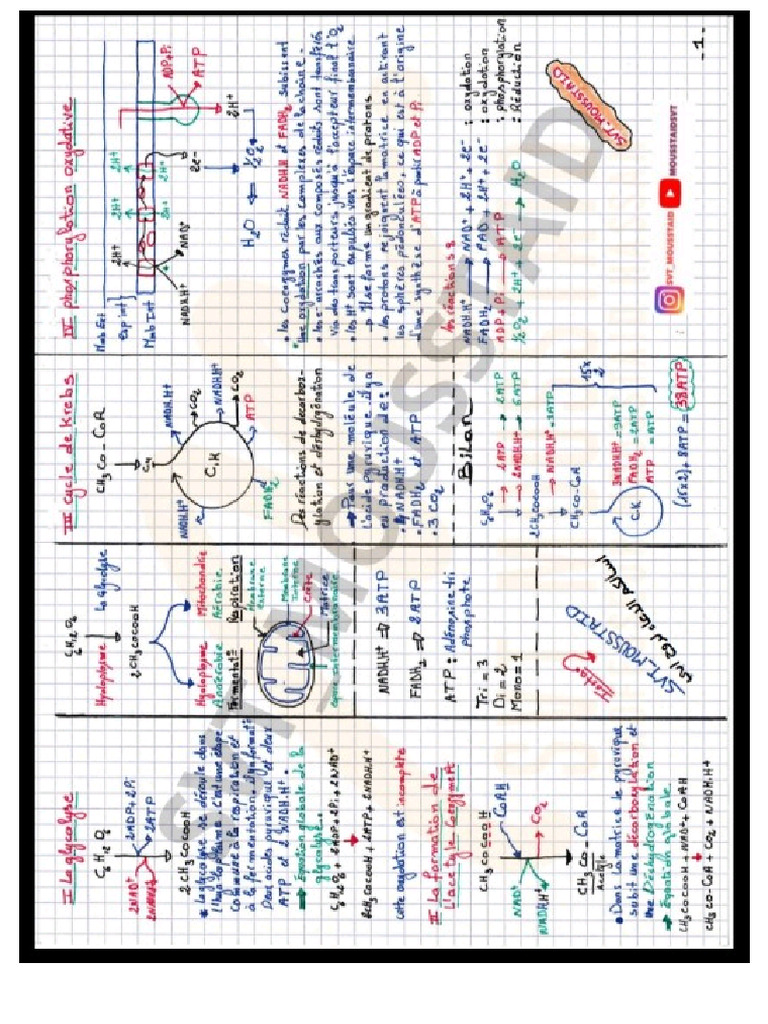 I La glycolyse
C6H12O6
2NAD+
2ADP+2Pi
2ATP
2CH3COCOOH
la glycolyse se déroule dans
l'hyaloplasme. C'est une étape
commune à la respiration et
à la fermentation.
Deux acides pyruvique et deux
ATP et 2 NADH.H+.
→ Equation globale de la
glycolyse.
C6H12O6 + 2ADP + 2Pi + 2NAD+
2CH3COCOOH + 2ATP + 2NADH.H+
cette oxydation est incomplete
II La formation de
l'acetyle Coenzyme A
CH3COCOOH
NAD+
CoAH
NADH.H+
CO2
CH3-CO-CoA
Acetyle
• Dans la matrice le pyruvique
subit une décarboxylation et
une Déshydrogénation
→ Equation globale.
CH3COCOOH + NAD+ + CoAH
CH3CO-CoA + CO2 + NADH.H+
C6H12O6
Hyaloplasme
La glycolyse
2CH3COCOOH
Hyaloplasme
Mitochondrie
Anaérobie
Aérobie
Fermentat°
Respiration
Membrane
externe
Membrane
Interne
Crête
Matrice
espace intermembranaire
NADH.H+ ⇒ 3ATP
FADH2 ⇒ 2ATP
ATP : Adénosine tri
phosphate
Tri = 3
Di = 2
Mono = 1
SVT_MOUSSTAID
III Cycle de Krebs
CH3CO-CoA
C4
NADH.H+
CO2
NADH.H+
C.K
NADH.H+
CO2
FADH2
ATP
Des réactions de decarbox-
ylation et déshydrogénation
→ Pour une molécule de
l'acide pyruvique. Il y a
eu production de :
• 4 NADH.H+
• FADH2 et ATP
• 3 CO2
Bilan
C6H12O6
2ATP → 2ATP
2NADH.H+ → 6ATP
2CH3COCOOH
NADH.H+ → 3ATP
CH3-CO-CoA
C.K
3NADH.H+ = 9ATP
FADH2 = 2ATP
ATP = ATP
15 x 2
(15x2) + 8ATP = 38ATP
IV phosphorylation oxydative
Mmb Ext
Esp int
Mmb Int
2H+
2H+
2H+
NADH.H+
NAD+
2e-
ADP+Pi
ATP
2H+
H2O
½O2
• les Coenzymes réduit NADH.H et FADH2 subissent
une oxydation par les complexes de la chaine.
• les e- arrachés aux composés réduits sont transférés
via des transporteurs jusqu'à l'accepteur final l'O2
• les H+ sont expulsés vers l'espace intermembranaire
→ Il se forme un gradient de protons.
• les protons rejoignent la matrice en activant
les sphères pédonculées, ce qui est à l'origine
d'une synthèse d'ATP à partir ADP et Pi
les réactions :
NADH.H+ → NAD+ + 2H+ + 2e- : oxydation
FADH2 → FAD + 2H+ + 2e- : oxydation
ADP + Pi → ATP : phosphorylation
½O2 + 2H+ + 2e- → H2O : Réduction
SVT_MOUSSTAID
SVT_MOUSSTAID
MOUSSTAIDSVT
- 1 -
SVT_MOUSSTAID